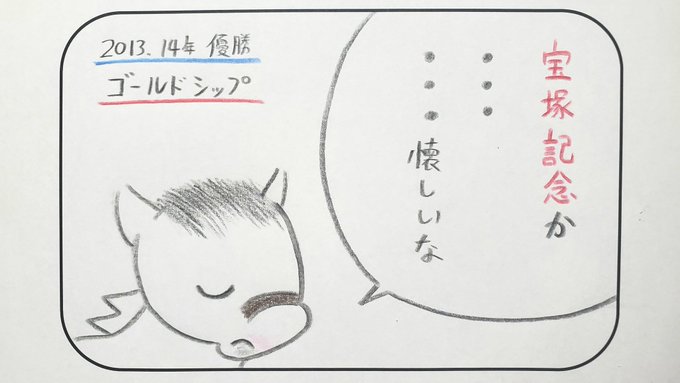 2013.14年 優勝
ゴールドシップ
宝塚記念か
・・・
・・・懐しいな